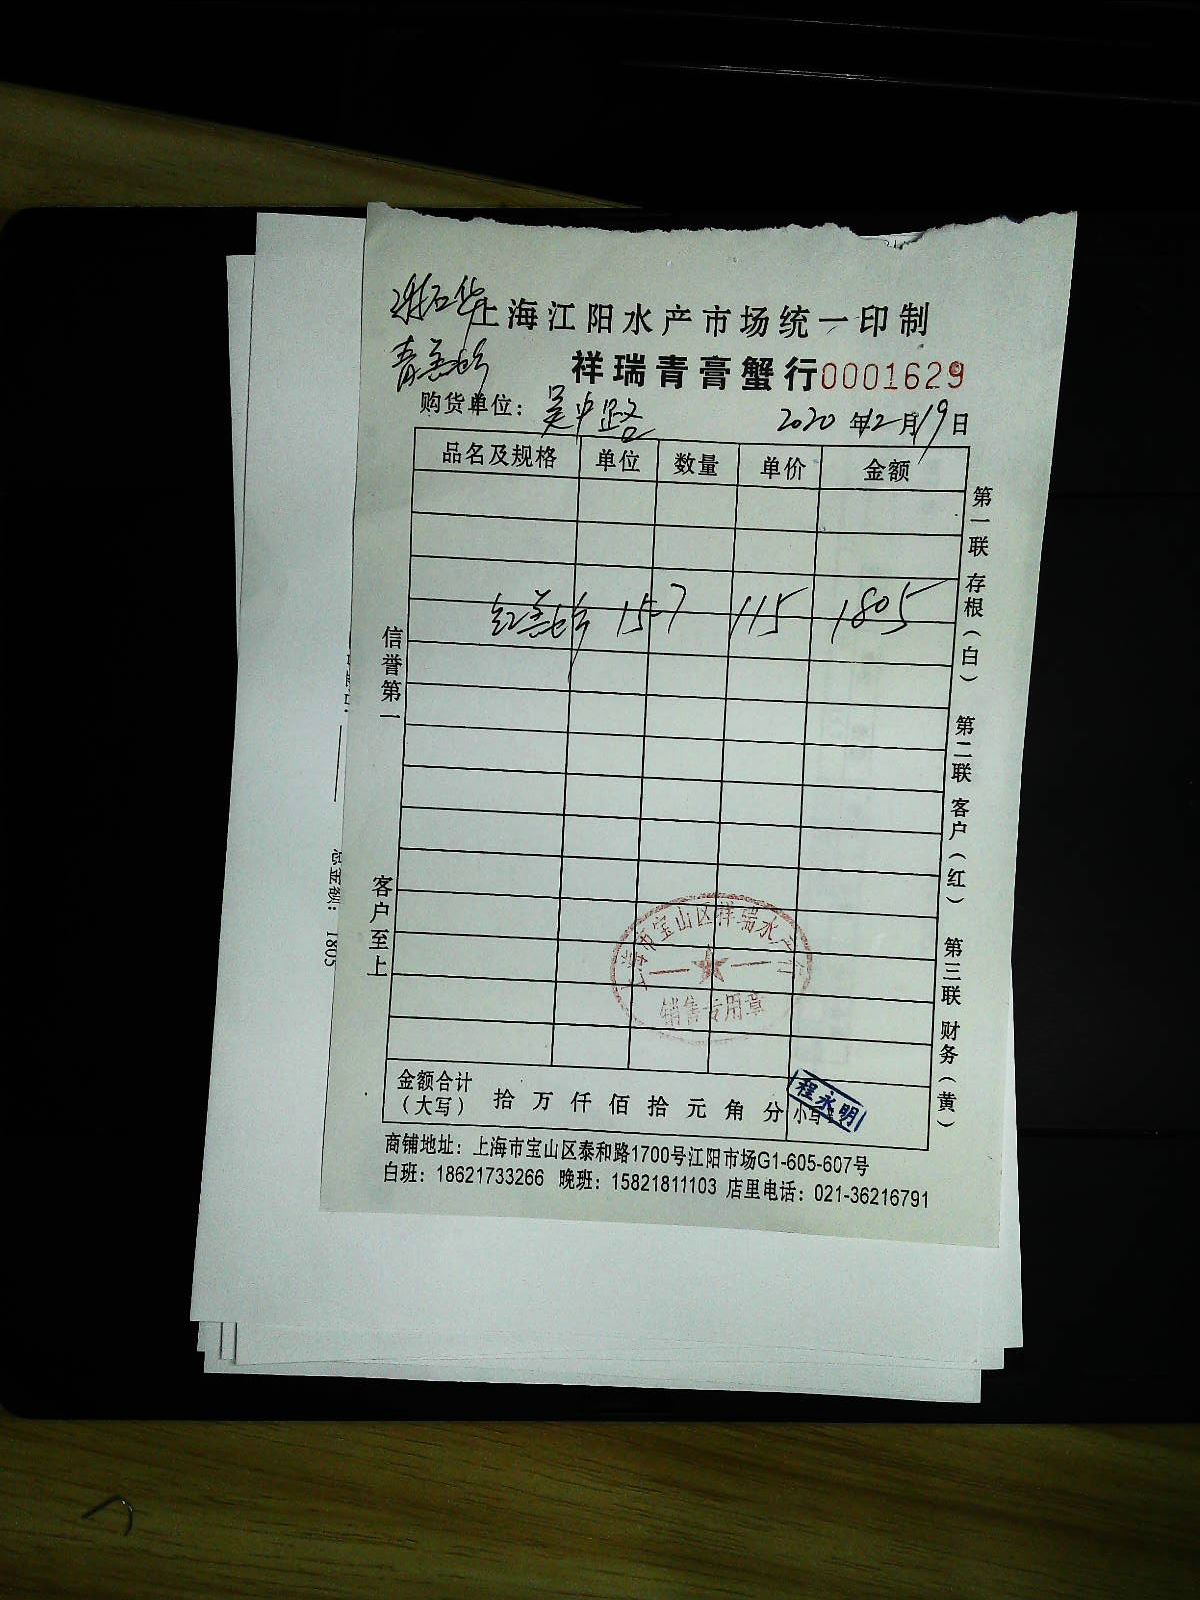 上海江阳水产市场统一印制
祥瑞青膏蟹行 0001629
购货单位： 吴中路 2020年12月19日
品名及规格 单位 数量 单价 金额
15.7 115 1805
信誉第一
客户至上
第一联 存根（白） 第二联 客户（红） 第三联 财务（黄）
上海市宝山区祥瑞水产行
销售专用章
金额合计
（大写） 拾 万 仟 佰 拾 元 角 分 小写
程永明
商铺地址：上海市宝山区泰和路1700号江阳市场G1-605-607号
白班：18621733266 晚班：15821811103 店里电话：021-36216791
总金额：1805